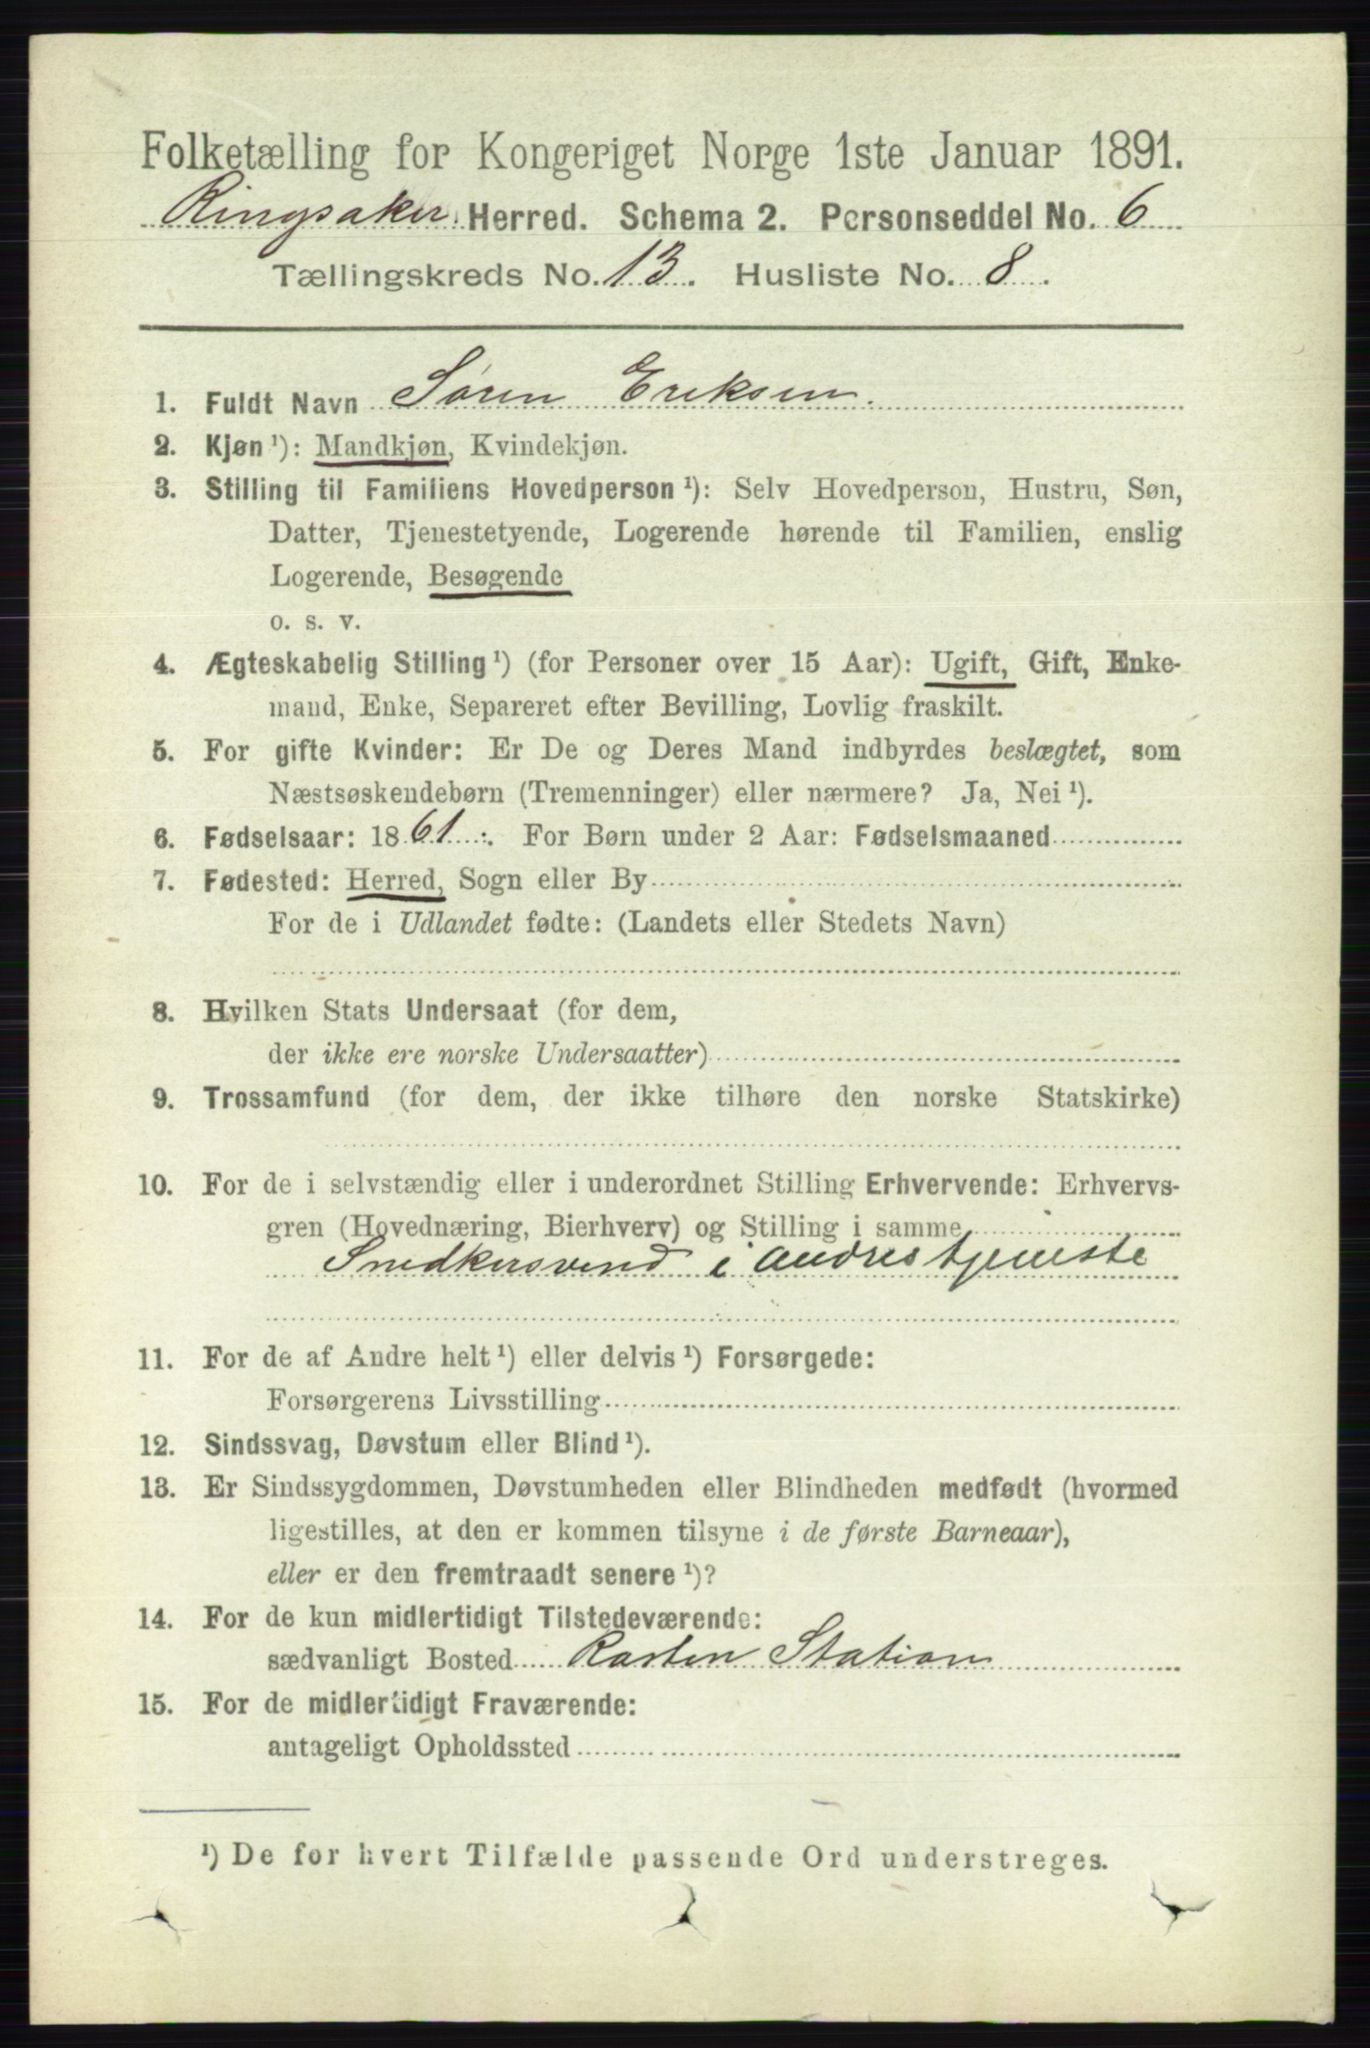 Folketælling for Kongeriget Norge 1ste Januar 1891.
Ringsaker Herred. Schema 2. Personseddel No. 6
Tællingskreds No. 13. Husliste No. 8.
1. Fuldt Navn Søren Eriksen.
2. Kjøn ¹): Mandkjøn, Kvindekjøn.
3. Stilling til Familiens Hovedperson ¹): Selv Hovedperson, Hustru, Søn,
Datter, Tjenestetyende, Logerende hørende til Familien, enslig
Logerende, Besøgende
o. s. v.
4. Ægteskabelig Stilling ¹) (for Personer over 15 Aar): Ugift, Gift, Enke-
mand, Enke, Separeret efter Bevilling, Lovlig fraskilt.
5. For gifte Kvinder: Er De og Deres Mand indbyrdes beslægtet, som
Næstsøskendebørn (Tremenninger) eller nærmere? Ja, Nei ¹).
6. Fødselsaar: 1861. For Børn under 2 Aar: Fødselsmaaned
7. Fødested: Herred, Sogn eller By
For de i Udlandet fødte: (Landets eller Stedets Navn)
8. Hvilken Stats Undersaat (for dem,
der ikke ere norske Undersaatter)
9. Trossamfund (for dem, der ikke tilhøre den norske Statskirke)
10. For de i selvstændig eller i underordnet Stilling Erhvervende: Erhvervs-
gren (Hovednæring, Bierhverv) og Stilling i samme
Snedkersvend i Andres tjeneste
11. For de af Andre helt ¹) eller delvis ¹) Forsørgede:
Forsørgerens Livsstilling
12. Sindssvag, Døvstum eller Blind ¹).
13. Er Sindssygdommen, Døvstumheden eller Blindheden medfødt (hvormed
ligestilles, at den er kommen tilsyne i de første Barneaar),
eller er den fremtraadt senere ¹)?
14. For de kun midlertidigt Tilstedeværende:
sædvanligt Bosted Rasten Station
15. For de midlertidigt Fraværende:
antageligt Opholdssted
¹) De for hvert Tilfælde passende Ord understreges.